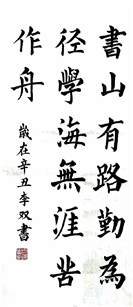 書山有路勤為
径學海無涯苦
作舟
歲在辛丑李双書